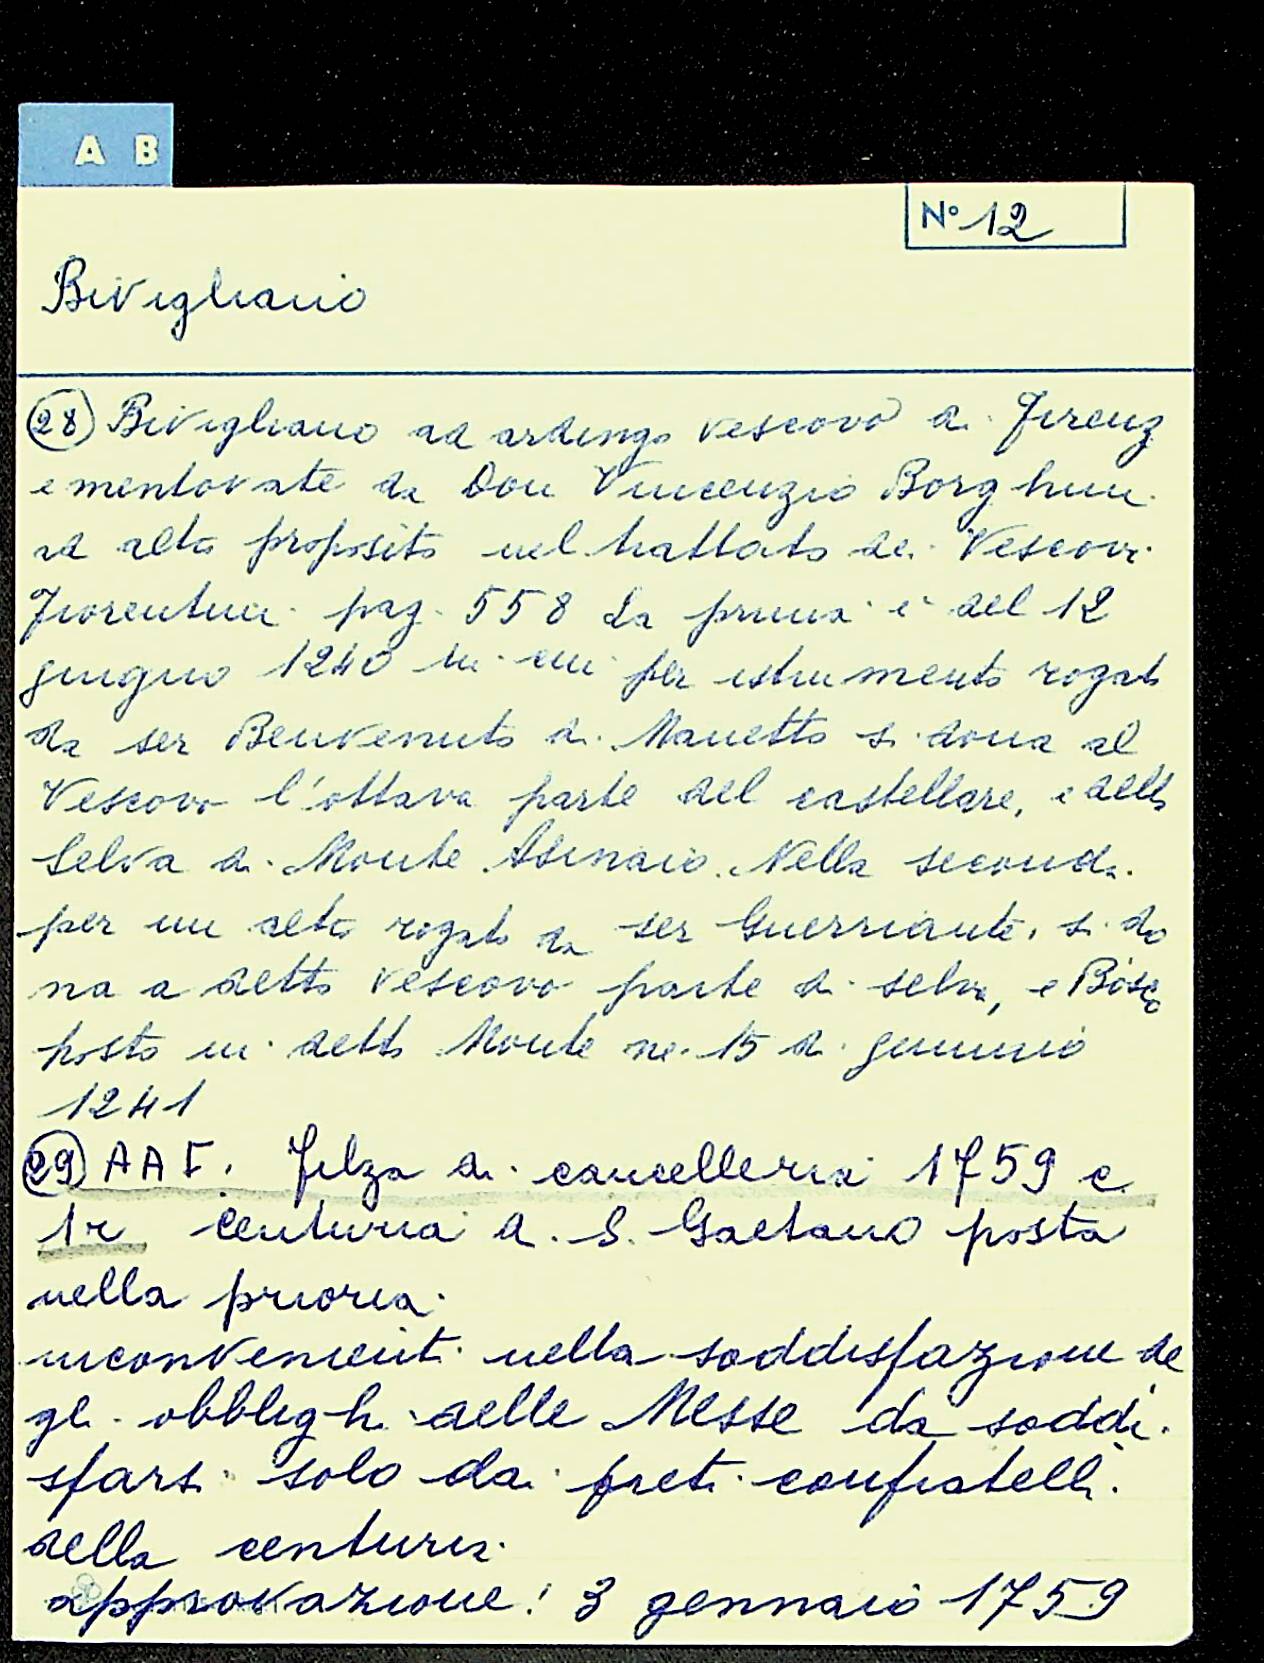 A B
N° 12
Bivigliano
28 Bivigliano ad ardingo vescovo di Firenz
e mentovate da Don Vincenzio Borghini
ad altro proposito nel trattato dei Vescovi
Fiorentini pag. 558 La prima è del 12
giugno 1240 in cui per istrumento rogato
da ser Benvenuto di Manetto si dona al
Vescovo l'ottava parte del castellare, e della
Selva di Monte Asinaio. Nella seconda
per un altro rogato da ser Guerriante, si do
na a detto vescovo parte di selva, e Bosco
posto in detto Monte ne 15 di gennaio
1241
29 AAF. Filza di cancelleria 1759 c.
1r centuria di S. Gaetano posta
nella prioria.
inconvenienti nella soddisfazione de
gli obblighi delle Messe da soddi
sfarsi solo dai preti confratelli
della centuria.
approvazione: 3 gennaio 1759